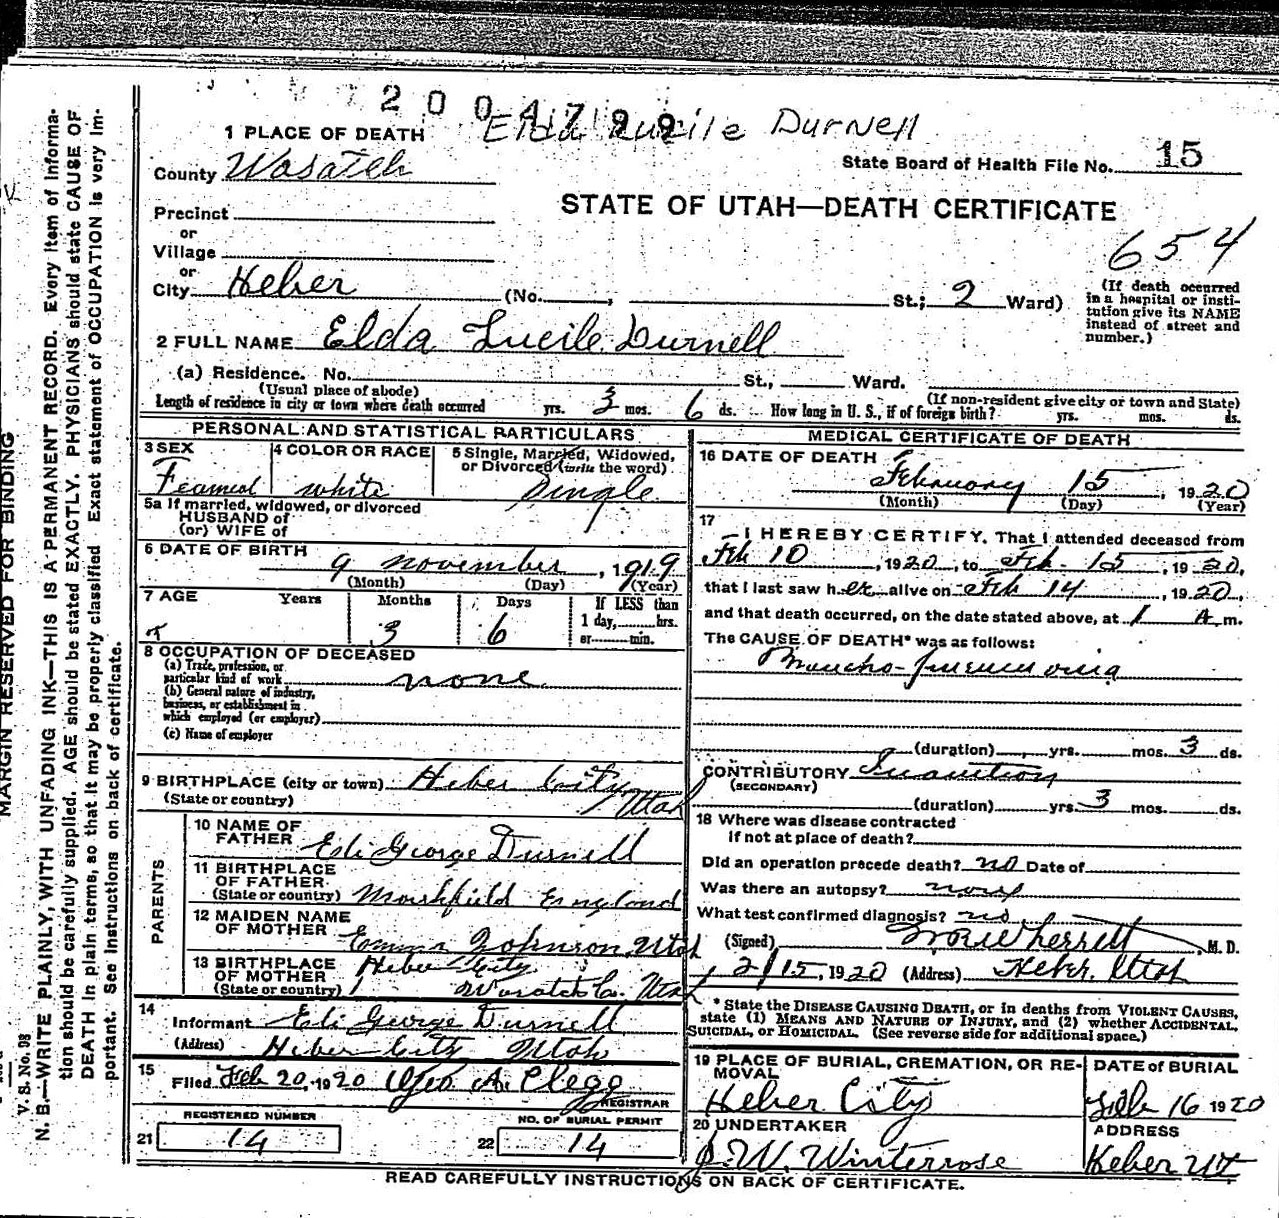 2004799
Elda Lucile Durnell
1 PLACE OF DEATH
State Board of Health File No. 15
County Wasatch
STATE OF UTAH—DEATH CERTIFICATE
654
Precinct
or
Village
or
City Heber (No. , St.; 2 Ward)
(If death occurred
in a hospital or insti-
tution give its NAME
instead of street and
number.)
2 FULL NAME Elda Lucile Durnell
(a) Residence. No. St., Ward.
(Usual place of abode)
(If non-resident give city or town and State)
Length of residence in city or town where death occurred yrs. 3 mos. 6 ds. How long in U. S., if of foreign birth? yrs. mos. ds.
PERSONAL AND STATISTICAL PARTICULARS
3 SEX
Feamal
4 COLOR OR RACE
white
5 Single, Married, Widowed,
or Divorced (write the word)
Single
5a If married, widowed, or divorced
HUSBAND of
(or) WIFE of
6 DATE OF BIRTH
9 november, 1919
(Month) (Day) (Year)
7 AGE Years Months Days If LESS than
1 day, hrs.
or min.
3 6
8 OCCUPATION OF DECEASED
(a) Trade, profession, or
particular kind of work none
(b) General nature of industry,
business, or establishment in
which employed (or employer)
(c) Name of employer
9 BIRTHPLACE (city or town) Heber City
(State or country) Utah
PARENTS
10 NAME OF
FATHER Eli George Durnell
11 BIRTHPLACE
OF FATHER
(State or country) Marshfield England
12 MAIDEN NAME
OF MOTHER Emma Johnson Utah
13 BIRTHPLACE
OF MOTHER
(State or country) Heber City
Wasatch Co. Utah
14
Informant Eli George Durnell
(Address) Heber City Utah
15
Filed Feb 20, 1920 Geo A. Clegg
REGISTRAR
REGISTERED NUMBER
21 14
NO. OF BURIAL PERMIT
22 14
MEDICAL CERTIFICATE OF DEATH
16 DATE OF DEATH
February 15, 1920
(Month) (Day) (Year)
17
I HEREBY CERTIFY, That I attended deceased from
Feb 10, 1920, to Feb 15, 1920,
that I last saw her alive on Feb 14, 1920,
and that death occurred, on the date stated above, at 1 A. m.
The CAUSE OF DEATH* was as follows:
Broncho-pneumonia
(duration) yrs. mos. 3 ds.
CONTRIBUTORY Inanition
(SECONDARY)
(duration) yrs. 3 mos. ds.
18 Where was disease contracted
if not at place of death?
Did an operation precede death? no Date of
Was there an autopsy?
What test confirmed diagnosis? no
(Signed) Wherritt, M. D.
2/15, 1920 (Address) Heber, Utah
* State the DISEASE CAUSING DEATH, or in deaths from VIOLENT CAUSES,
state (1) MEANS AND NATURE OF INJURY, and (2) whether ACCIDENTAL,
SUICIDAL, OR HOMICIDAL. (See reverse side for additional space.)
19 PLACE OF BURIAL, CREMATION, OR RE-
MOVAL
Heber City
DATE of BURIAL
Feb 16 1920
20 UNDERTAKER
J. W. Winterrose
ADDRESS
Heber Ut
READ CAREFULLY INSTRUCTIONS ON BACK OF CERTIFICATE.
MARGIN RESERVED FOR BINDING
V. S. No. 98
N. B.—WRITE PLAINLY, WITH UNFADING INK—THIS IS A PERMANENT RECORD. Every item of informa-
tion should be carefully supplied. AGE should be stated EXACTLY. PHYSICIANS should state CAUSE OF
DEATH in plain terms, so that it may be properly classified. Exact statement of OCCUPATION is very im-
portant. See instructions on back of certificate.